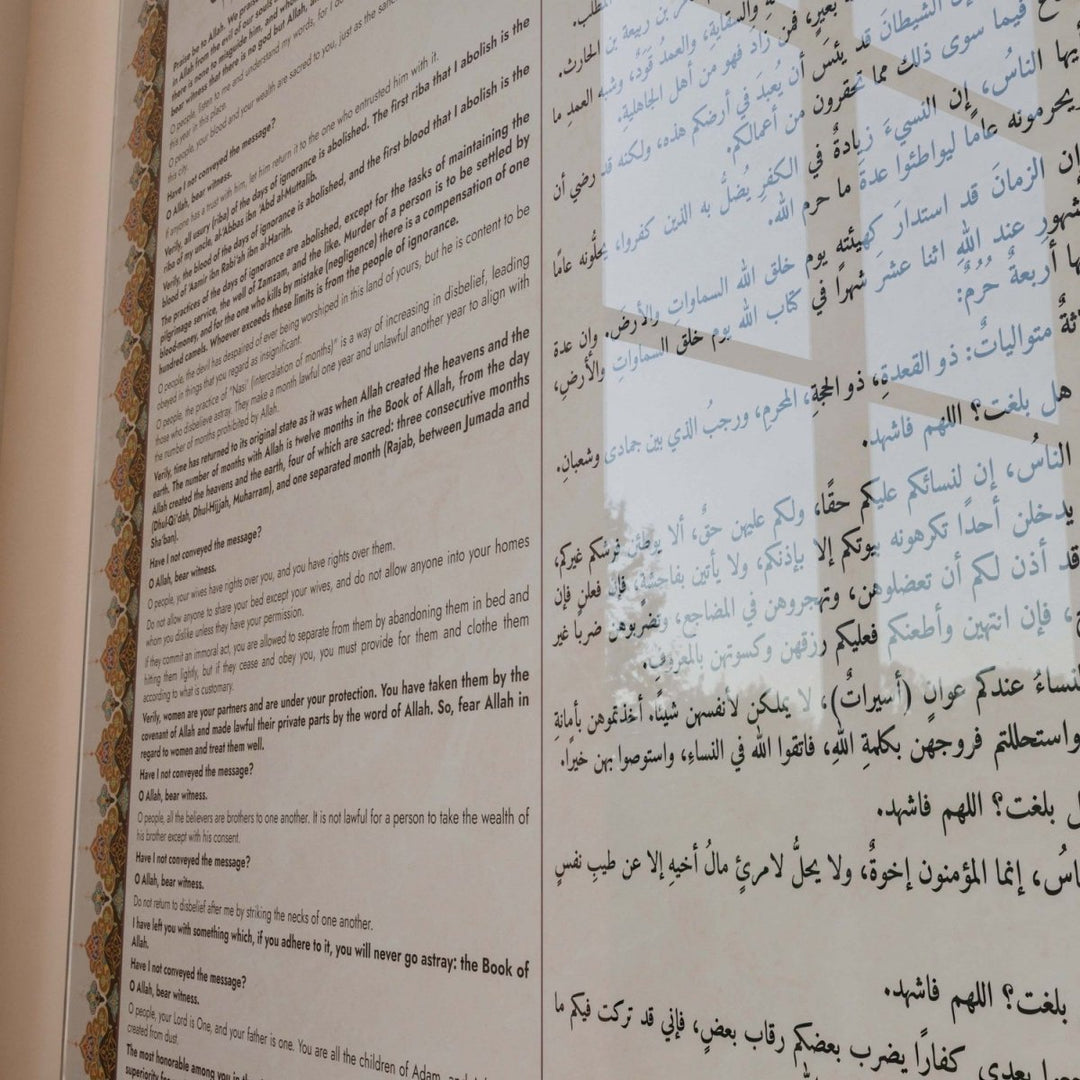 Praise be to Allah. We praise
in Allah from the evil of our souls
there is none to misguide him, and
bear witness that there is no god but Allah,
O people, listen to me and understand my words, for I do
this year in this place.
O people, your blood and your wealth are sacred to you, just as the
this city.
Have I not conveyed the message?
O Allah, bear witness.
If anyone has a trust with him, let him return it to the one who entrusted him with it.
Verily, all usury (riba) of the days of ignorance is abolished. The first riba that I abolish is the
riba of my uncle, al-'Abbas ibn 'Abd al-Muttalib.
Verily, the blood of the days of ignorance is abolished, and the first blood that I abolish is the
blood of 'Aamir ibn Rabi'ah ibn al-Harith.
The practices of the days of ignorance are abolished, except for the tasks of maintaining the
pilgrimage service, the well of Zamzam, and the like. Murder of a person is to be settled by
blood-money, and for the one who kills by mistake (negligence) there is a compensation of one
hundred camels. Whoever exceeds these limits is from the people of ignorance.
O people, the devil has despaired of ever being worshiped in this land of yours, but he is content to be
obeyed in things that you regard as insignificant.
O people, the practice of "Nasi' (intercalation of months)" is a way of increasing in disbelief, leading
those who disbelieve astray. They make a month lawful one year and unlawful another year to align with
the number of months prohibited by Allah.
Verily, time has returned to its original state as it was when Allah created the heavens and the
earth. The number of months with Allah is twelve months in the Book of Allah, from the day
Allah created the heavens and the earth, four of which are sacred: three consecutive months
(Dhul-Qi'dah, Dhul-Hijjah, Muharram), and one separated month (Rajab, between Jumada and
Sha'ban).
Have I not conveyed the message?
O Allah, bear witness.
O people, your wives have rights over you, and you have rights over them.
Do not allow anyone to share your bed except your wives, and do not allow anyone into your homes
whom you dislike unless they have your permission.
If they commit an immoral act, you are allowed to separate from them by abandoning them in bed and
hitting them lightly, but if they cease and obey you, you must provide for them and clothe them
according to what is customary.
Verily, women are your partners and are under your protection. You have taken them by the
covenant of Allah and made lawful their private parts by the word of Allah. So, fear Allah in
regard to women and treat them well.
Have I not conveyed the message?
O Allah, bear witness.
O people, all the believers are brothers to one another. It is not lawful for a person to take the wealth of
his brother except with his consent.
Have I not conveyed the message?
O Allah, bear witness.
Do not return to disbelief after me by striking the necks of one another.
I have left you with something which, if you adhere to it, you will never go astray: the Book of
Allah.
Have I not conveyed the message?
O Allah, bear witness.
O people, your Lord is One, and your father is one. You are all the children of Adam,
created from dust.
The most honorable among you in
بن ربيعة بن الحارث.
والسقاية، والعمدُ قَوَدٌ، وشبه العمدِ ما
بعيرٍ، فمن زادَ فهو من أهل الجاهليةِ.
الشيطانَ قد يئسَ أن يُعبدَ في أرضكم هذه، ولكنه قد رضي أن
فيما سوى ذلك مما تحقرون من أعمالكم.
أيها الناسُ، إن النسيءَ زيادةٌ في الكفرِ يُضلُّ به الذين كفروا، يحلُّونه عامًا
يحرمونه عامًا ليواطئوا عدةَ ما حرم الله.
إن الزمانَ قد استدارَ كهيئته يوم خلق الله السماواتِ والأرضَ. وإن عدة
شهورِ عند اللهِ اثنا عشرَ شهرًا في كتاب الله يوم خلق السماواتِ والأرضِ،
ها أربعةٌ حُرُمٌ:
متوالياتٌ: ذو القعدةِ، ذو الحجةِ، المحرمِ، ورجبُ الذي بين جمادى وشعبانِ.
هل بلغت؟ اللهم فاشهد.
الناسُ، إن لنسائكم عليكم حقًا، ولكم عليهن حقٌ، ألا يوطئن فرشكم غيركم،
يدخلن أحدًا تكرهونه بيوتكم إلا بإذنكم، ولا يأتين بفاحشةٍ، فإن فعلن فإن
قد أذن لكم أن تعضلوهن، وتهجروهن في المضاجع، وتضربوهن ضربًا غير
فإن انتهين وأطعنكم فعليكم رزقهن وكسوتهن بالمعروفِ.
النساءُ عندكم عوانٍ (أسيراتٌ)، لا يملكن لأنفسهن شيئًا. أخذتموهن بأمانةِ
واستحللتم فروجهن بكلمةِ اللهِ، فاتقوا الله في النساءِ، واستوصوا بهن خيرًا.
بلغت؟ اللهم فاشهد.
إنما المؤمنون إخوةٌ، ولا يحلُّ لامرئٍ مالُ أخيهِ إلا عن طيبِ نفسٍ
بلغت؟ اللهم فاشهد.
بعدي كفارًا يضرب بعضكم رقاب بعضٍ، فإني قد تركت فيكم ما